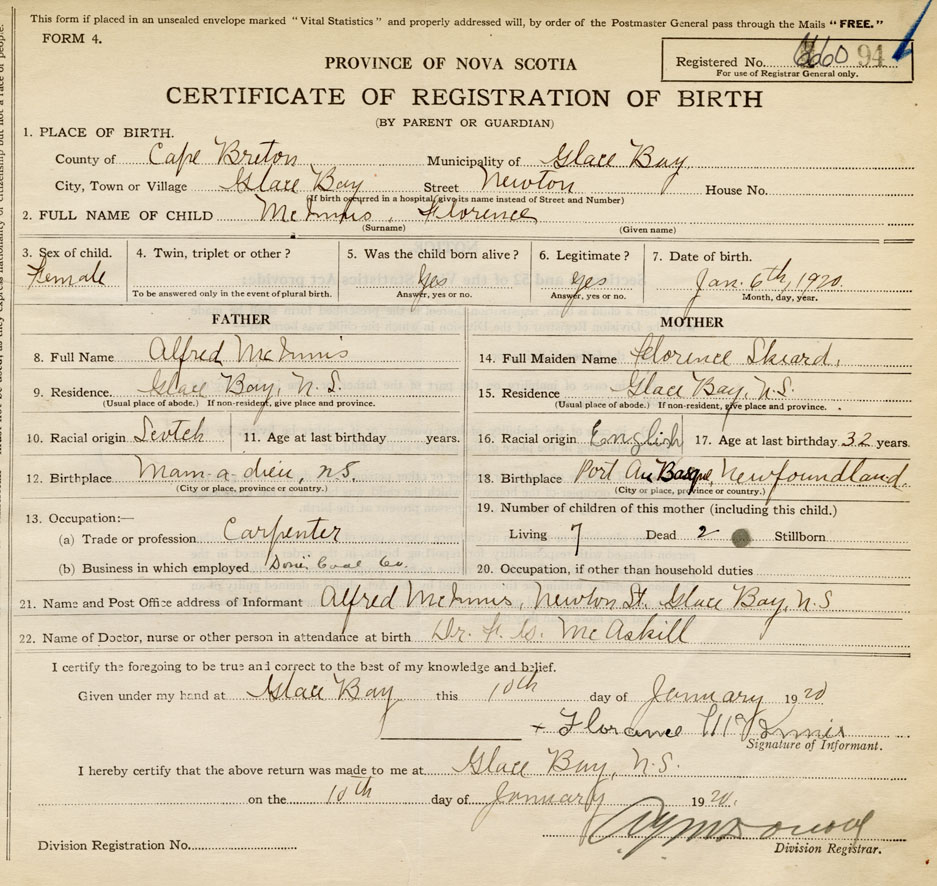 This form if placed in an unsealed envelope marked "Vital Statistics" and properly addressed will, by order of the Postmaster General pass through the Mails "FREE."
FORM 4.
PROVINCE OF NOVA SCOTIA
Registered No. 94
For use of Registrar General only.
CERTIFICATE OF REGISTRATION OF BIRTH
(BY PARENT OR GUARDIAN)
1. PLACE OF BIRTH.
County of Cape Breton Municipality of Glace Bay
City, Town or Village Glace Bay Street Newton House No.
(If birth occurred in a hospital give its name instead of Street and Number)
2. FULL NAME OF CHILD McInnis, Florence
(Surname) (Given name)
3. Sex of child. 4. Twin, triplet or other? 5. Was the child born alive? 6. Legitimate? 7. Date of birth.
Female Yes Yes Jan. 6th, 1920.
To be answered only in the event of plural birth. Answer, yes or no. Answer, yes or no. Month, day, year.
FATHER MOTHER
8. Full Name Alfred McInnis 14. Full Maiden Name Florence
9. Residence Glace Bay, N.S. 15. Residence Glace Bay, N.S.
(Usual place of abode.) If non-resident, give place and province. (Usual place of abode.) If non-resident, give place and province.
10. Racial origin Scotch 11. Age at last birthday years. 16. Racial origin English 17. Age at last birthday 32 years.
12. Birthplace Main-a-dieu, N.S. 18. Birthplace Port Au Basque, Newfoundland.
(City or place, province or country.) (City or place, province or country.)
13. Occupation:— 19. Number of children of this mother (including this child.)
(a) Trade or profession Carpenter Living 7 Dead 2 Stillborn
(b) Business in which employed Dom. Coal Co. 20. Occupation, if other than household duties
21. Name and Post Office address of Informant Alfred McInnis, Newton St. Glace Bay, N.S
22. Name of Doctor, nurse or other person in attendance at birth Dr. McAskill
I certify the foregoing to be true and correct to the best of my knowledge and belief.
Given under my hand at Glace Bay this 10th day of January 1920
+ Florance McInnis
Signature of Informant.
I hereby certify that the above return was made to me at Glace Bay, N.S.
on the 10th day of January 1920.
Division Registration No. Division Registrar.